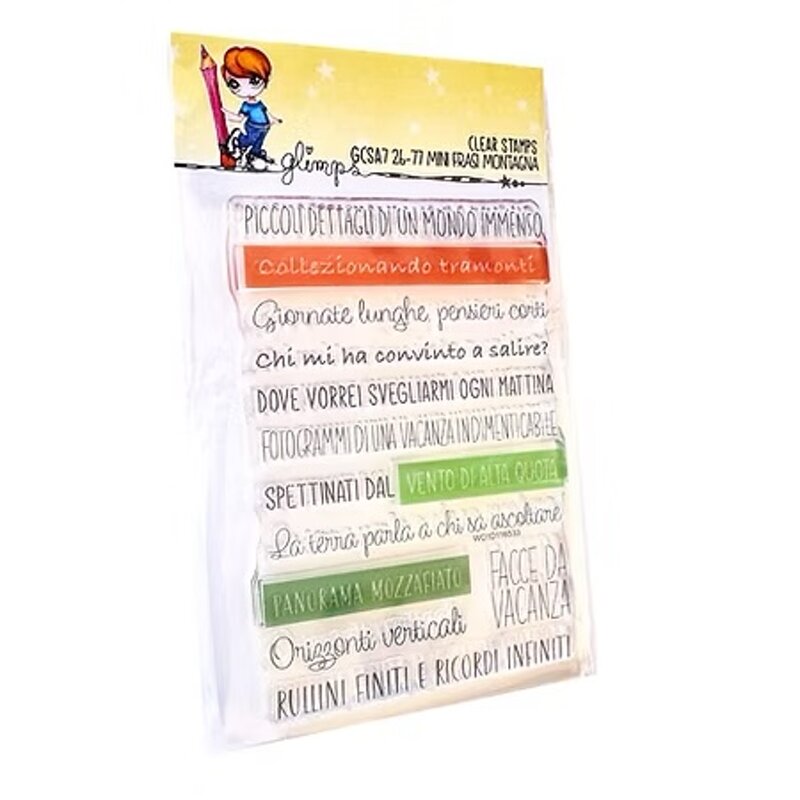 glimps
CLEAR STAMPS
GCSA7 26-77 MINI FRASI MONTAGNA
PICCOLI DETTAGLI DI UN MONDO IMMENSO
Collezionando tramonti
Giornate lunghe, pensieri corti
Chi mi ha convinto a salire?
DOVE VORREI SVEGLIARMI OGNI MATTINA
FOTOGRAMMI DI UNA VACANZA INDIMENTICABILE
SPETTINATI DAL VENTO DI ALTA QUOTA
La terra parla a chi sa ascoltare
PANORAMA MOZZAFIATO
FACCE DA
VACANZA
Orizzonti verticali
RULLINI FINITI E RICORDI INFINITI